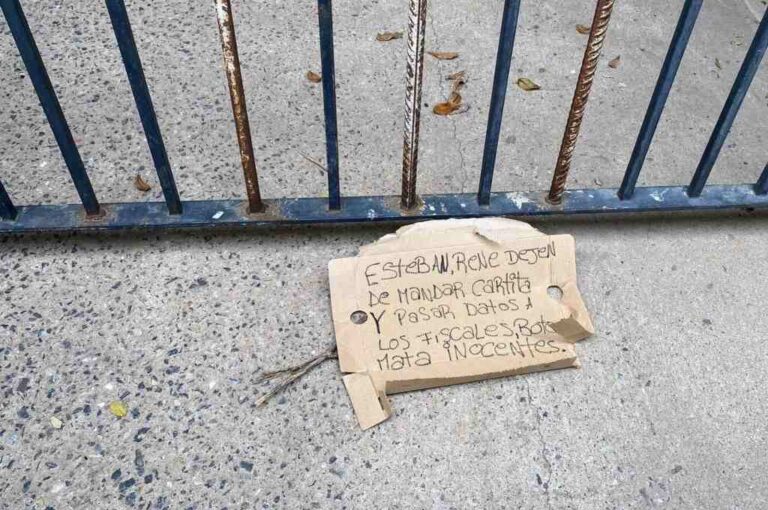 ESTEBAN, RENE DEJEN
DE MANDAR CARTITA
Y PASAR DATOS A
LOS FISCALES,
MATA INOCENTES.